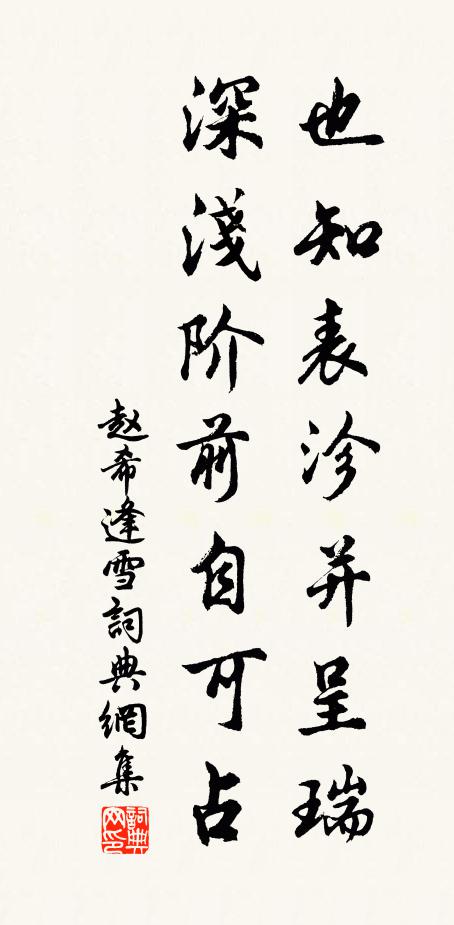 也知表沴并呈瑞
深淺阶前自可占
赵希逢雪詞典網集
詞典网印